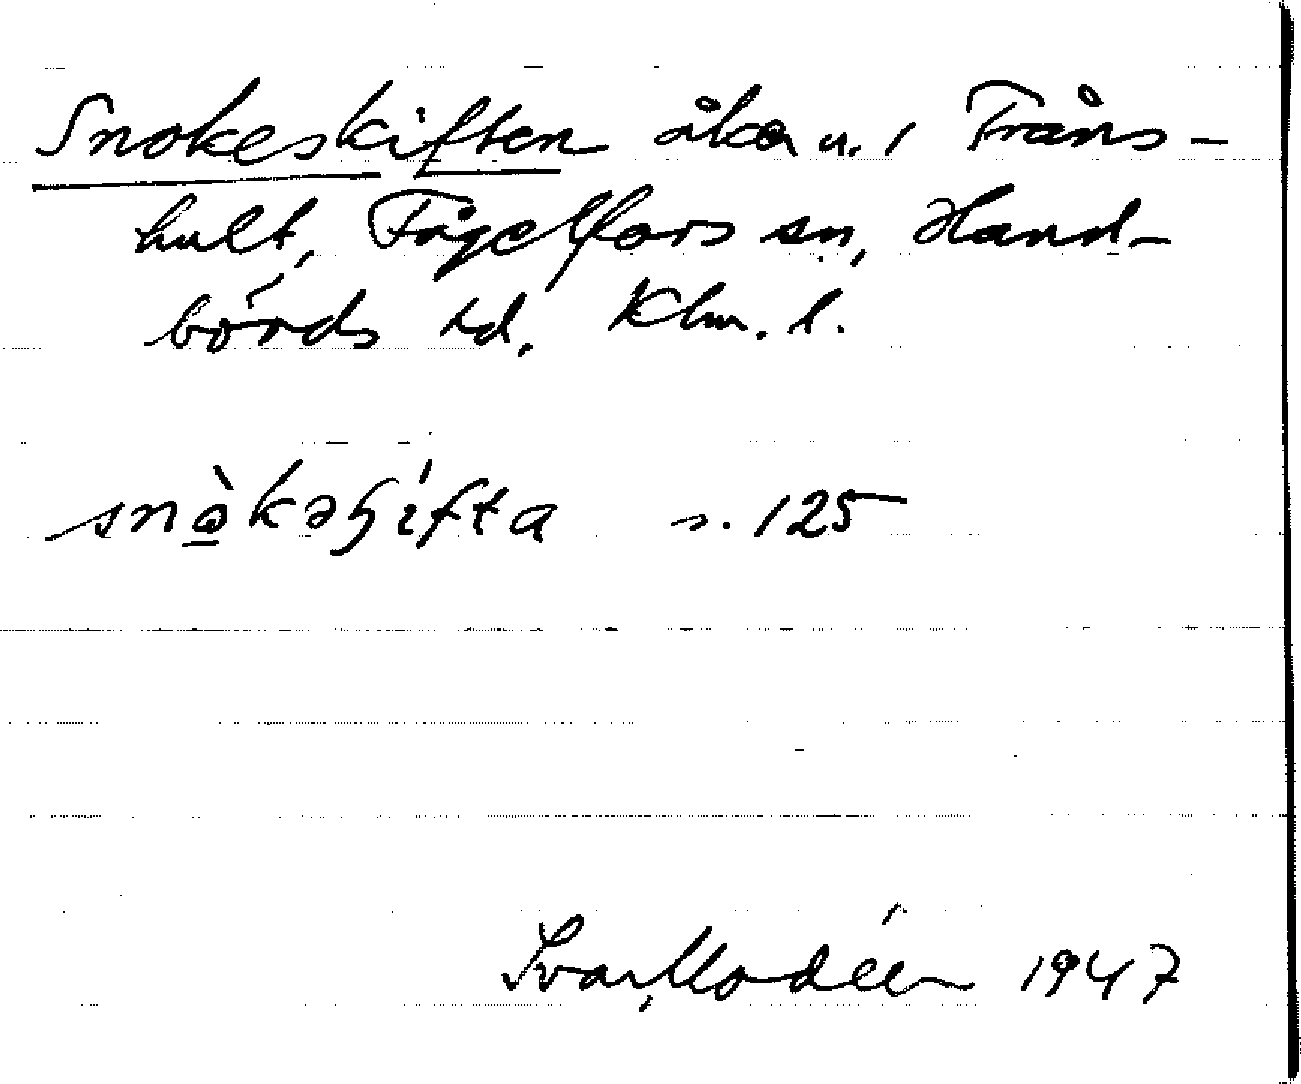 Snokeskiften åka u. 1 Fråns-
hult, Fågelfors sn, Hand-
börds hd. Klm. l.
snò̱kəʃífta s. 125
Ivar Modéer 1947